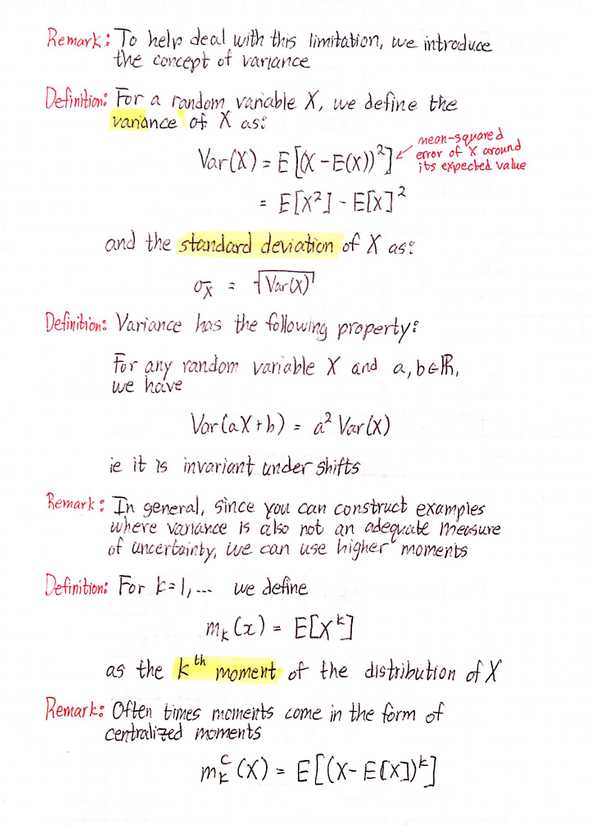 Remark: To help deal with this limitation, we introduce
the concept of variance
Definition: For a random variable X, we define the
variance of X as:
Var(X) = E[(X - E(X))²]
mean-squared
error of X around
its expected value
= E[X²] - E[X]²
and the standard deviation of X as:
σ_X = √Var(X)
Definition: Variance has the following property:
For any random variable X and a, b ∈ ℝ,
we have
Var(aX + b) = a² Var(X)
ie it is invariant under shifts
Remark: In general, since you can construct examples
where variance is also not an adequate measure
of uncertainty, we can use higher moments
Definition: For k=1,... we define
m_k(x) = E[X^k]
as the k^th moment of the distribution of X
Remark: Often times moments come in the form of
centralized moments
m_k^c(X) = E[(X - E[X])^k]